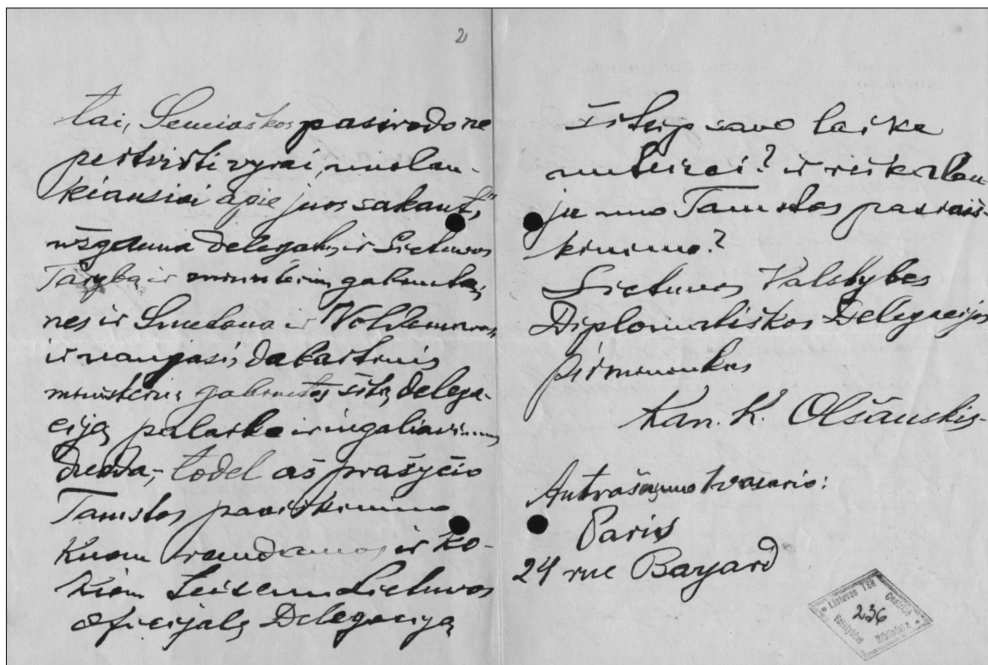 2
tai, Semiaškos pasirodo ne
vyrai,
kiansiai apie juos sakant,
delegatus ir Lietuvos
Tarybą ir ministerių gabinetą,
nes ir Smetona ir Voldemaras
ir naujasis dabartinis
ministerių gabinetas šitą delega-
ciją palaiko ir
duoda, todel aš prašyčio
Tamstos paaiškinimo
Kuom remdamos ir ko-
kiom teisem Lietuvos
oficijalę Delegaciją
savo laiške
ir reikalau-
ju nuo Tamstos paaiš-
kinimo?
Lietuvos Valstybės
Diplomatiškos Delegacijos
pirmininkas
Kan. K. Olšauskis.
Antrašas
Paris
24 rue Bayard
Lietuvos TSR
236